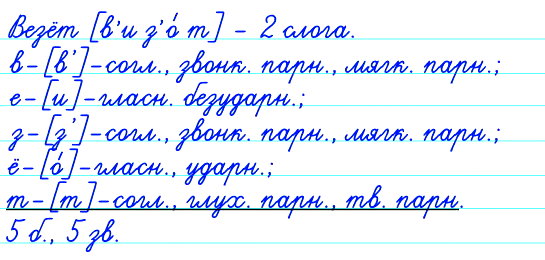 Везёт [в'и з'о́ т] – 2 слога.
в–[в']–согл., звонк. парн., мягк. парн.;
е–[и]–гласн. безударн.;
з–[з']–согл., звонк. парн., мягк. парн.;
ё–[о́]–гласн., ударн.;
т–[т]–согл., глух. парн., тв. парн.
5 б., 5 зв.